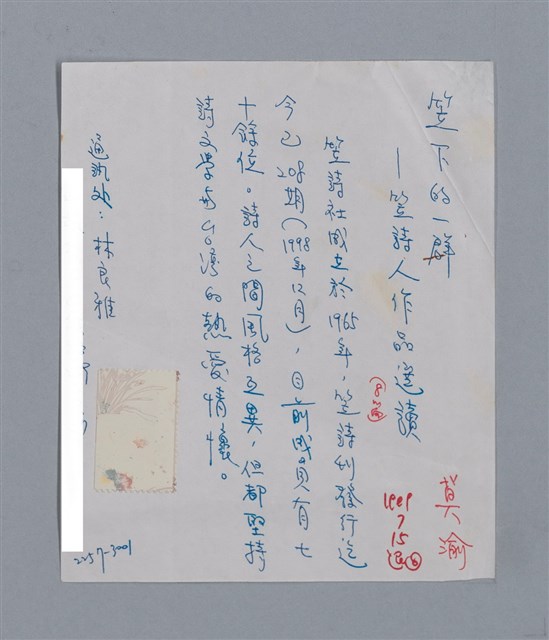 笠下的一群
—笠詩人作品選讀
莫渝
1999
7
15
笠詩社成立於1965年,笠詩刊發行迄
今已208期(1998年12月),目前成員有七
十餘位。詩人之間風格互異,但都堅持
詩文學与台湾的熱愛情懷。
通訊处:林良雅
2257-3001